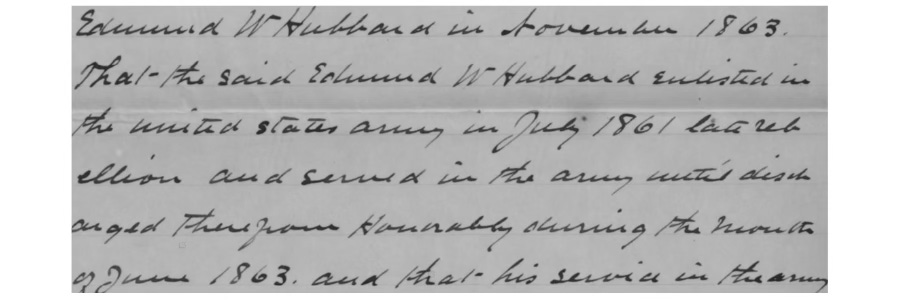 Edmund W Hubbard in November 1863.
That the said Edmund W Hubbard enlisted in
the united states army in July 1861 late reb
ellion and served in the army until disch
arged therefrom Honorably during the month
of June 1863. and that his service in the army